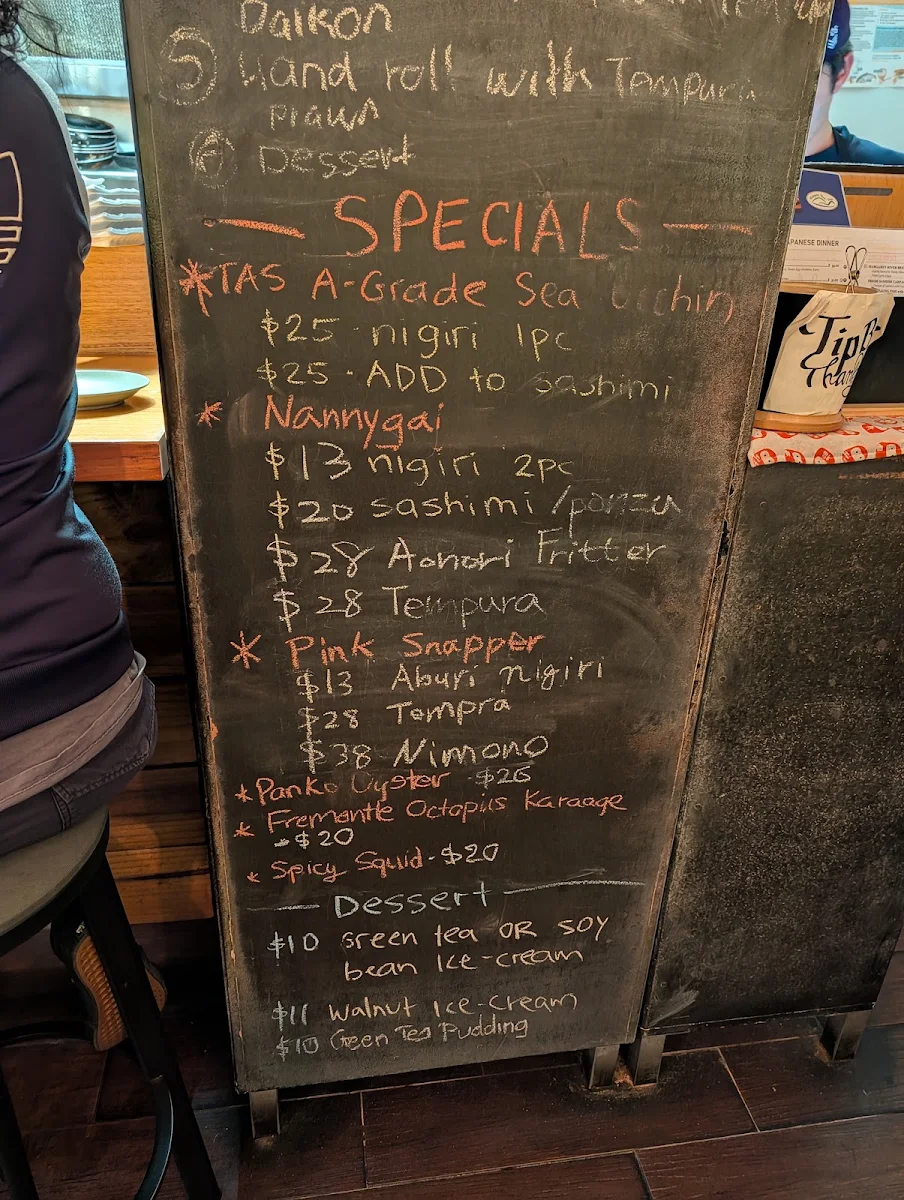 Daikon
5 Hand roll with Tempura
prawn
6 Dessert
— SPECIALS —
*TAS A-Grade Sea Urchin
$25 · nigiri 1pc
$25 · ADD to sashimi
* Nannygai
$13 nigiri 2pc
$20 sashimi / ponzu
$28 Aonori Fritter
$28 Tempura
* Pink Snapper
$13 Aburi nigiri
$28 Tempra
$38 Nimono
*Panko Oyster $26
* Fremantle Octopus Karaage
-$20
* Spicy Squid-$20
— Dessert —
$10 Green tea OR SOY
bean Ice-cream
$11 Walnut Ice-cream
$10 Green Tea Pudding
JAPANESE DINNER
Tip